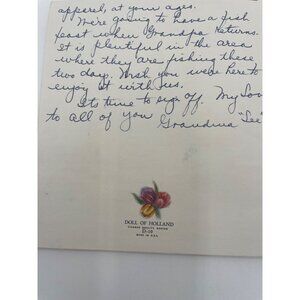 apparel, at your ages.
We're going to have a fish
feast when Grandpa returns.
It is plentiful in the area
where they are fishing these
two day. Wish you were here to
enjoy it with us.
Its time to sign off. My Lov
to all of you
Grandma "Lee"
DOLL OF HOLLAND
MADE IN U.S.A.